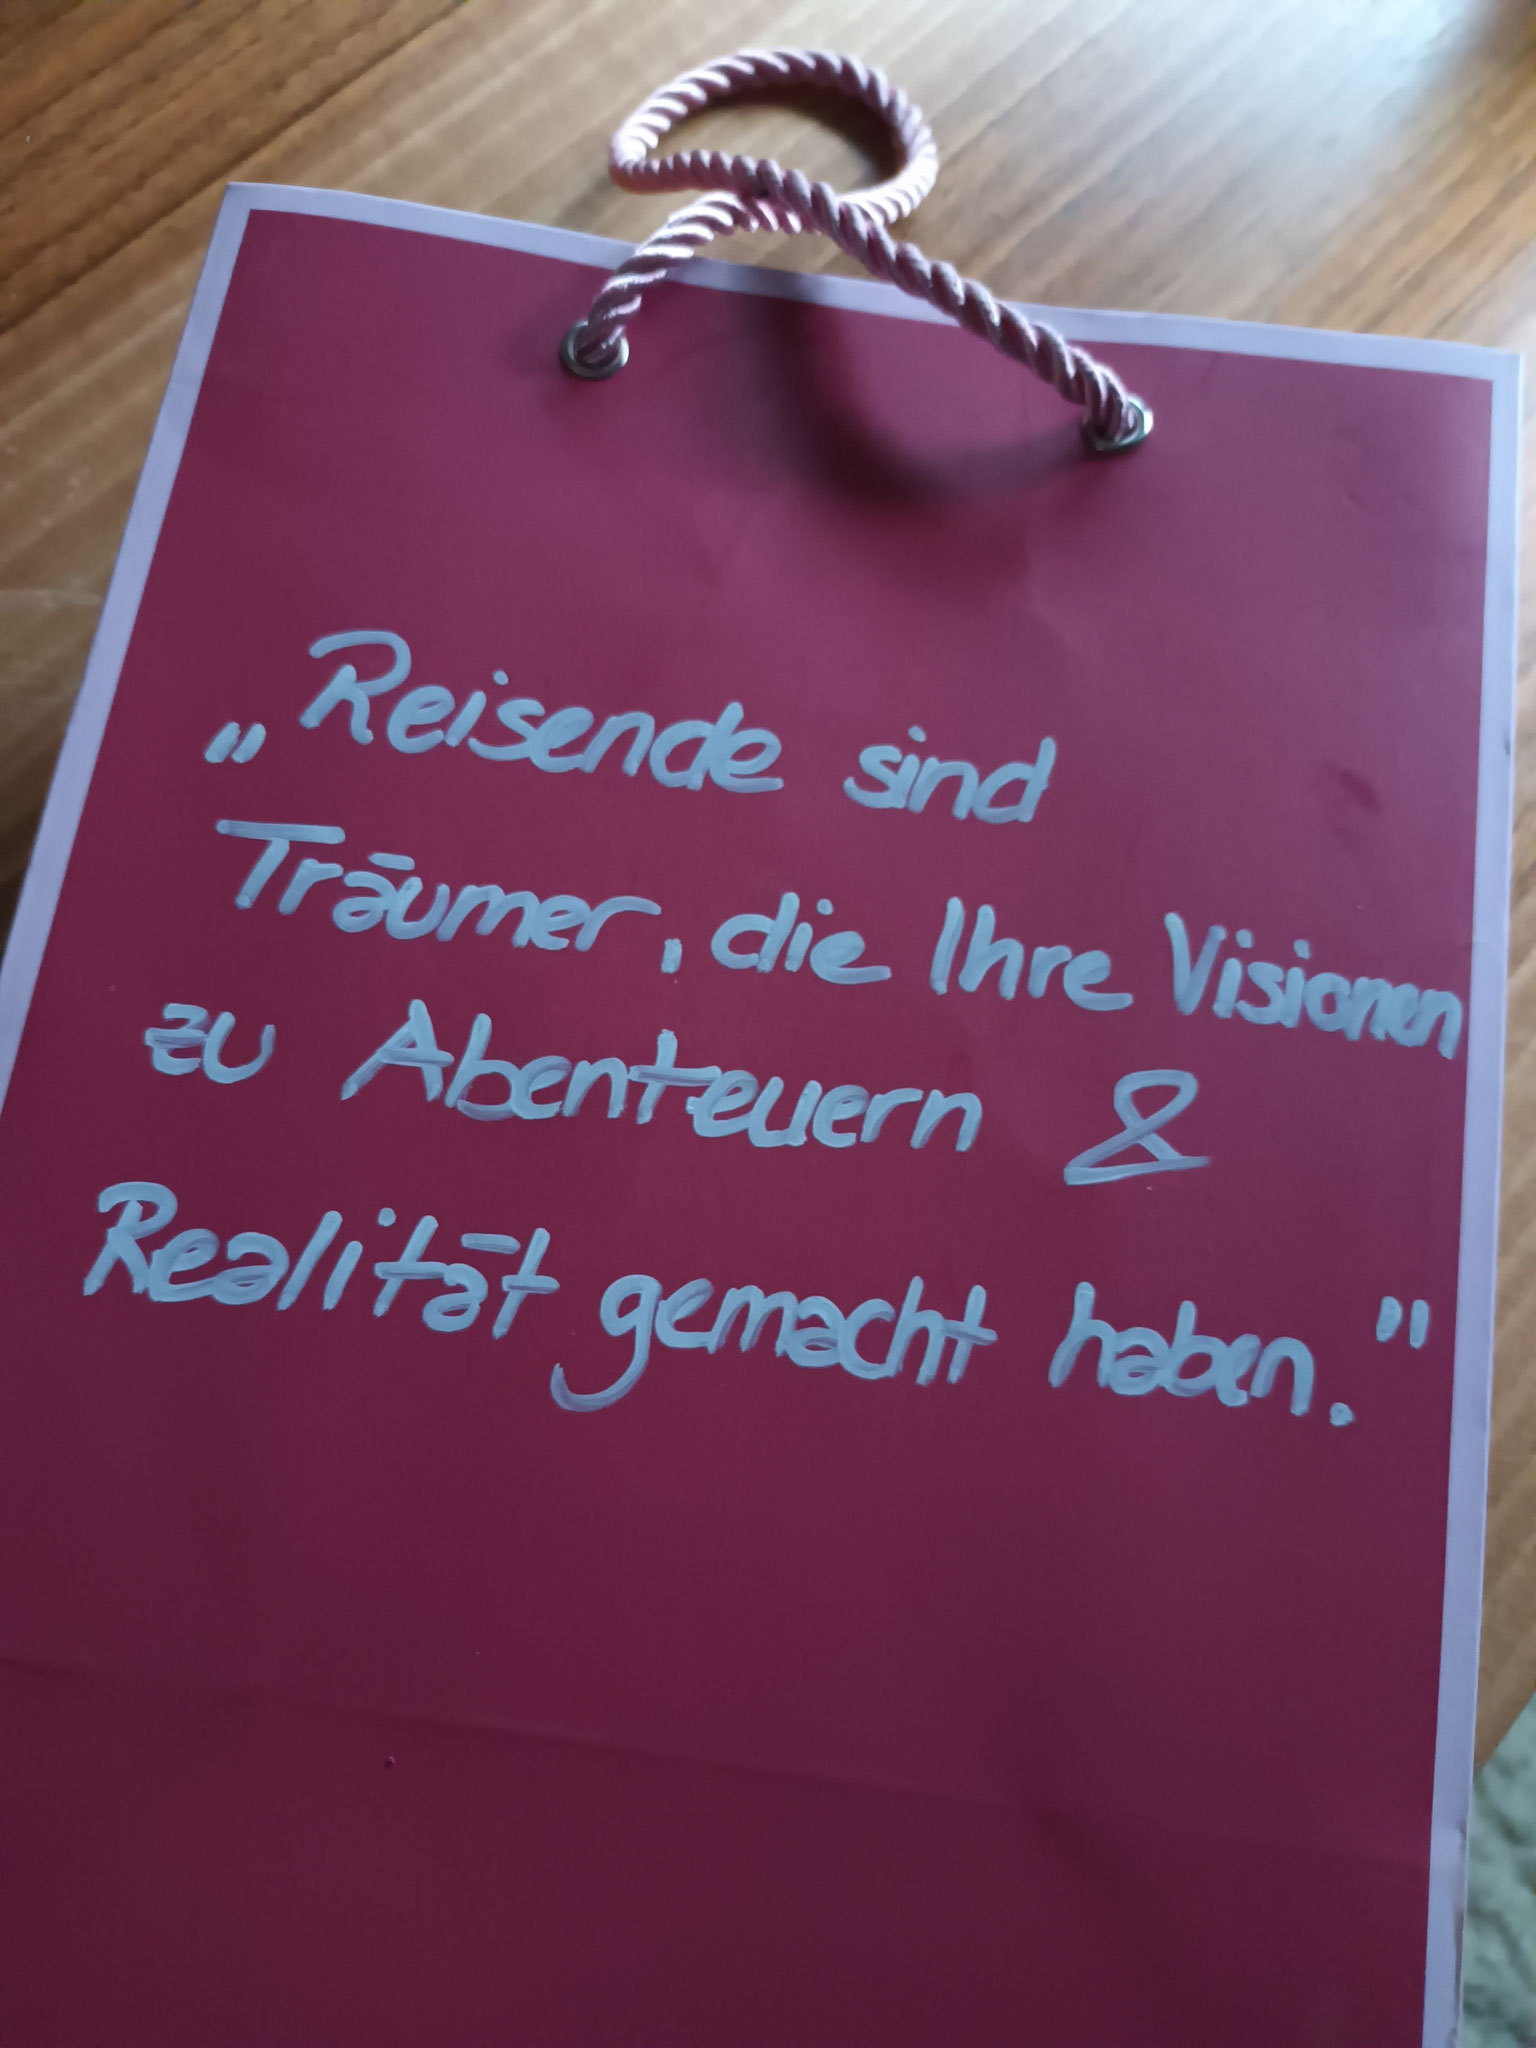 „Reisende sind
Träumer, die Ihre Visionen
zu Abenteuern &
Realität gemacht haben."